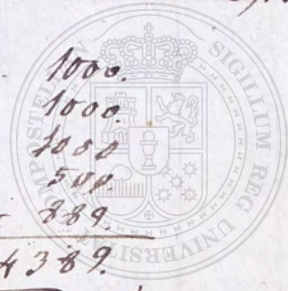 1000.
1000.
1000
500.
889.
4389.
SIGILLUM REG UNIVERSIT OMPOSTEL